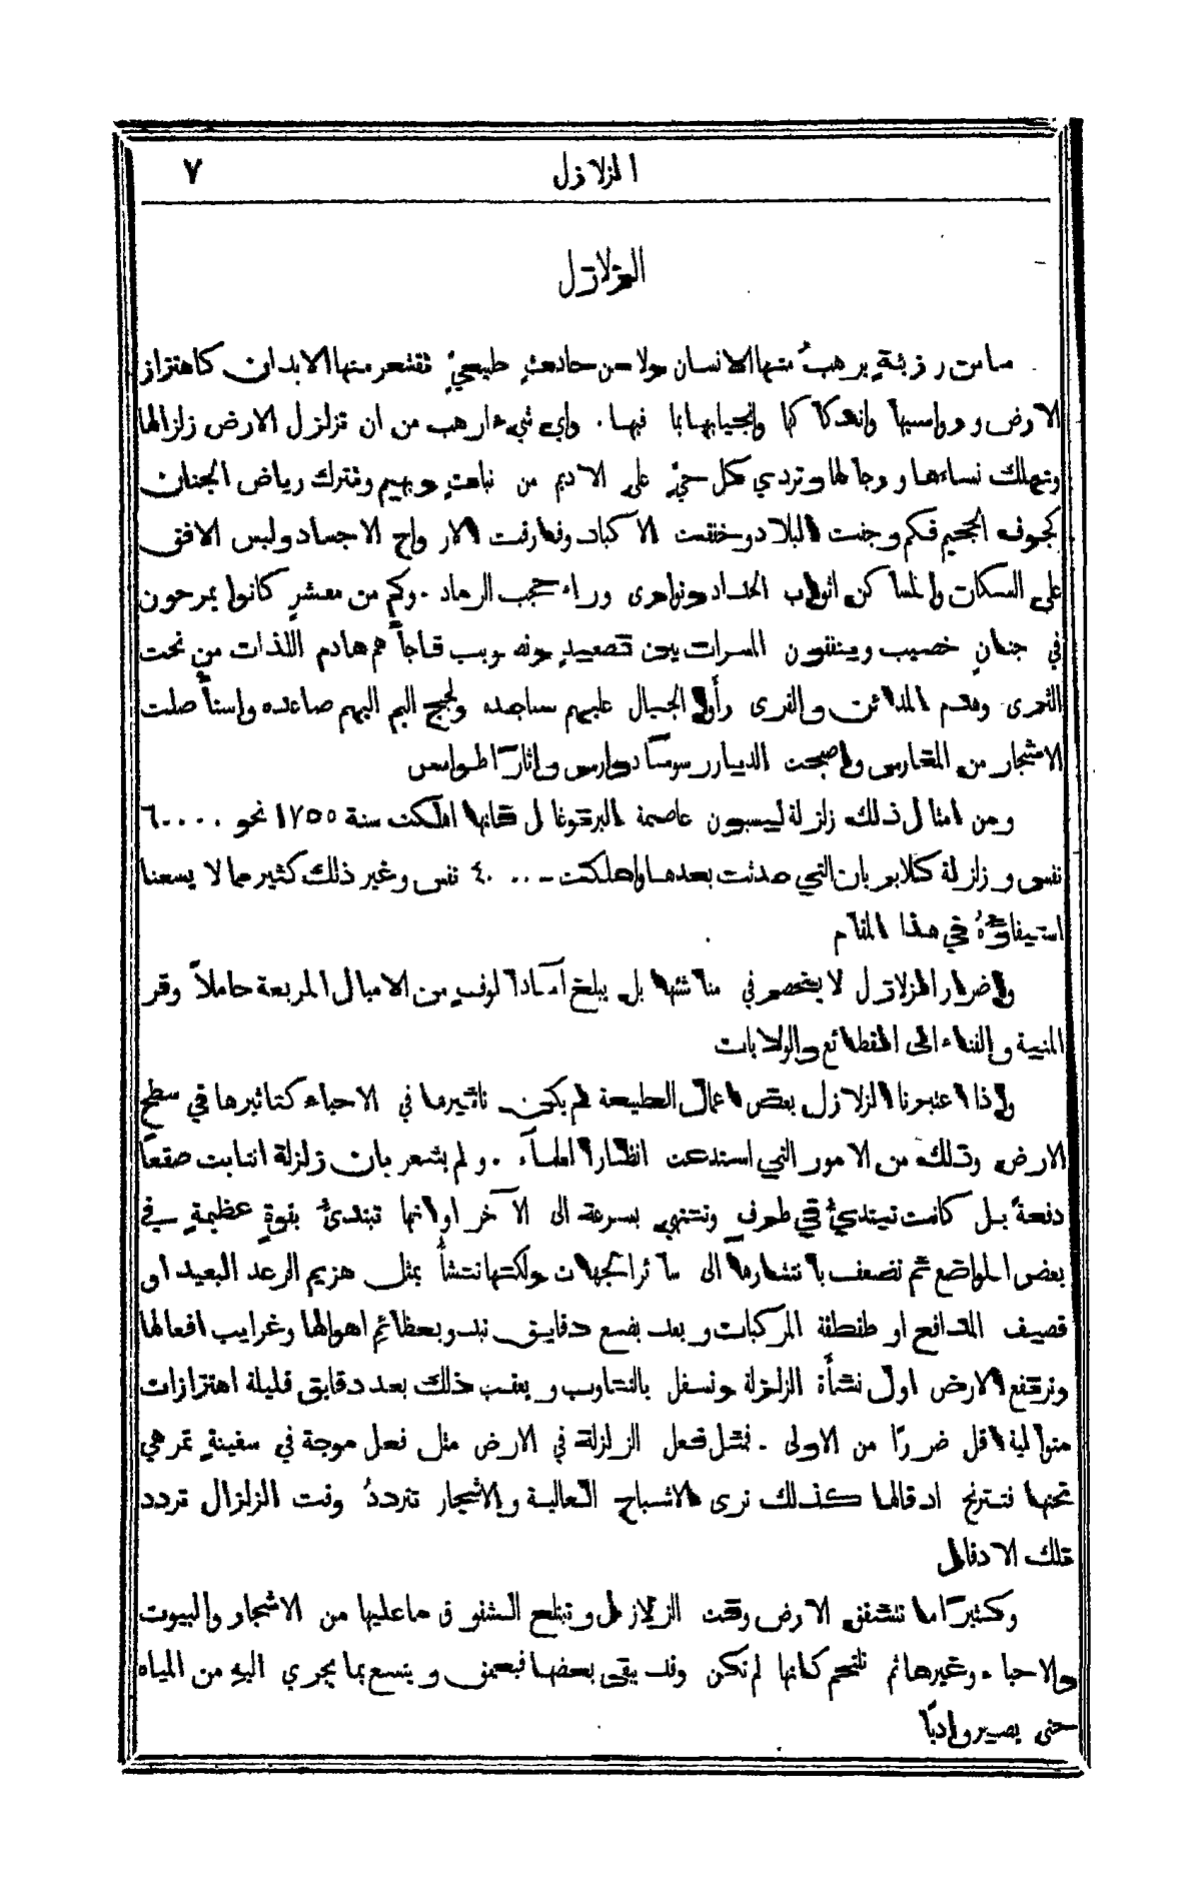 الزلازل ٧
الزلازل
ما من رزيئةٍ يرهبُ منها الانسان ولا من حادثٍ طبيعيٍّ تقشعر منها الابدان كاهتزاز
الارض ورواسيها واندكاكها وانجيابها بما فيها. واي شيءٍ ارهب من ان تزلزل الارض زلزالها
وتهلك نساءها ورجالها وتردي كل حيٍّ على الاديم من نباتٍ وبهيم وتترك رياض الجنان
كجوف الجحيم فكم وجفت البلاد وخفقت الاكباد وفارقت الارواح الاجساد ولبس الافق
على السكان والمساكن اثواب الحداد وتوارى وراء حجب الرماد. وكم من معشرٍ كانوا يمرحون
في جنانٍ خصيب وينتقون المسرات بين تصعيدٍ وتصويب فاجأَهم هادم اللذات من تحت
الثرى وهدم المدائن والقرى رأَوا الجبال عليهم ساجدة ولجج اليم اليهم صاعدة واستأصلت
الاشجار من المغارس واصبحت الديار رسومًا دوارس واثارًا طوامس
ومن امثال ذلك زلزلة ليسبون عاصمة البرتوغال فانها اهلكت سنة ١٧٥٥ نحو ٦٠٠٠٠
نفس وزلزلة كلابريا التي حدثت بعدها واهلكت ٤٠٠٠٠ نفس وغير ذلك كثير مما لا يسعنا
استيفاؤهُ في هذا المقام
واضرار الزلازل لا ينحصر في منائشها بل يبلغ آمادًا الوفٍ من الاميال المربعة حاملاً وقر
المنية والفناء الى القطائع والولايات
واذا اعتبرنا الزلازل بعض اعمال الطبيعة لم يكن تاثيرها في الاحياء كتاثيرها في سطح
الارض وذلك من الامور التي استدعت انظار العلماء. ولم يشعر بان زلزلة انتابت صقعًا
دفعةً بل كانت تبتدئُ في طرفٍ وتنتهي بسرعة الى الآخر او انها تبتدئُ بقوةٍ عظيمةٍ في
بعض المواضع ثم تضعف بانتشارها الى سائر الجهات ولكنها تنشأُ بمثل هزيم الرعد البعيد او
قصيف المدافع او طقطقة المركبات وبعد بضع دقايق تبدو بعظائم اهوالها وغرايب افعالها
وترتفع الارض اول نشأَة الزلزلة وتسفل بالتناوب ويعقب ذلك بعد دقايق قليلة اهتزازات
متوالية اقل ضررًا من الاولى. فمثل فعل الزلزلة في الارض مثل فعل موجة في سفينةٍ تمر هي
تحتها فتترنح ادقالها كذلك ترى الاشباح العالية والاشجار تترددُ وقت الزلزال تردد
تلك الادقال
وكثيرًا ما تنشقق الارض وقت الزلازل وتبتلع الشقوق ما عليها من الاشجار والبيوت
والاحياء وغيرها ثم تلتحم كانها لم تكن وقد يبقى بعضها فيعمق ويتسع بما يجري اليهِ من المياه
حتى يصير واديًا